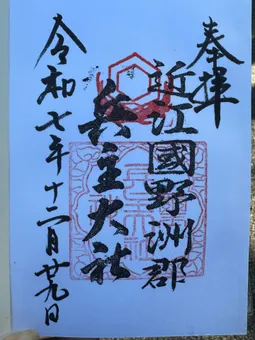 奉拝
近江國野洲郡
兵主大社
令和七年十一月廿九日